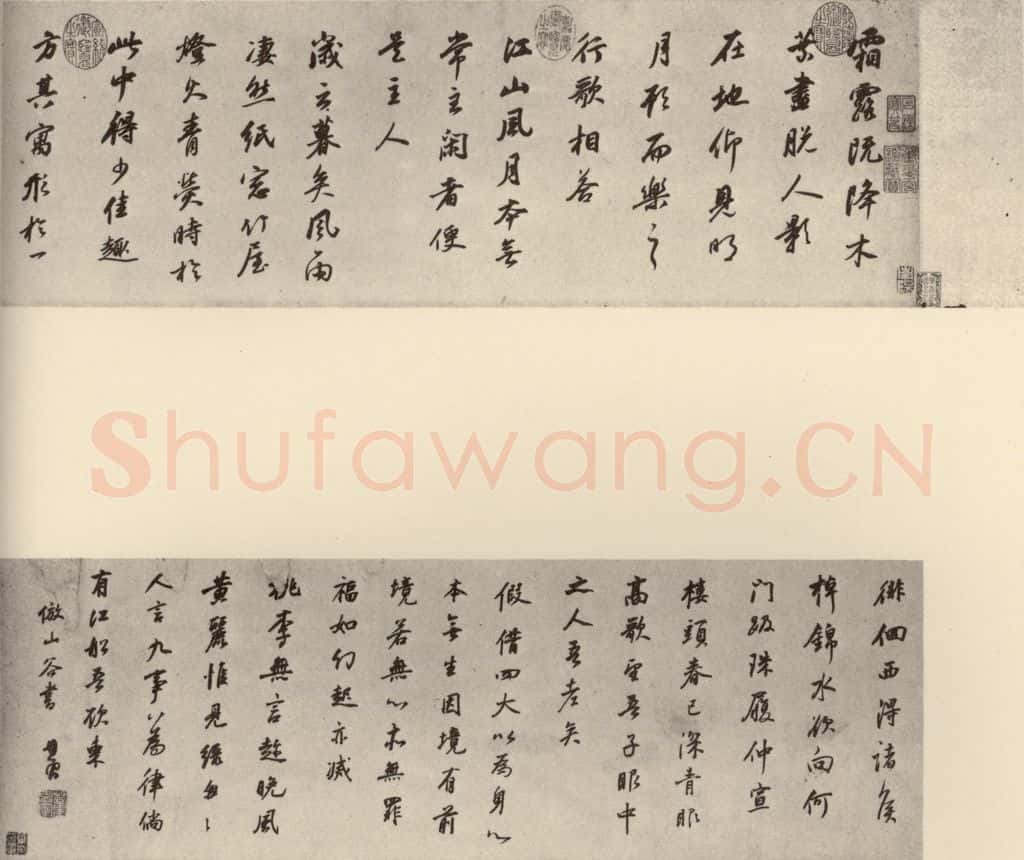 霜露既降木
葉盡脫人影
在地仰見明
月顧而樂之
行歌相答
江山風月本無
常主閑者便
是主人
歲云暮矣風雨
凄然紙窓竹屋
燈火青熒時於
此中得少佳趣
方其寓形於一
Shufawang.CN
徘徊西得諸侯
棹錦水欲向何
門趿珠履仲宣
樓頭春已深青眼
高歌望吾子眼中
之人吾老矣
假借四大以為身心
本無生因境有前
境若無心亦無罪
福如幻起亦滅
桃李無言趁晚風
黃麗惟見綠匆匆
人言九事八為律倘
有江船吾欲東
倣山谷書 其昌